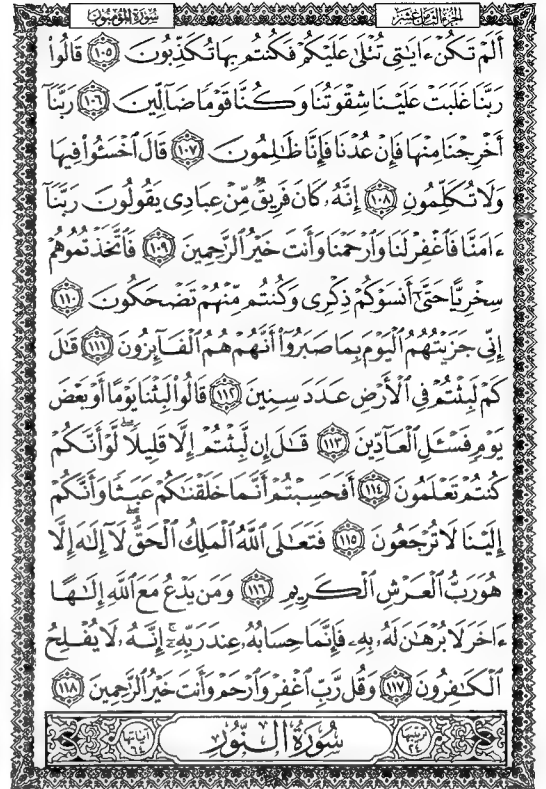 سُورَةُ المُؤْمِنُونَ
الجُزْءُ الثَّامِنُ عَشَرَ
أَلَمْ تَكُنْ ءَايَٰتِى تُتْلَىٰ عَلَيْكُمْ فَكُنتُم بِهَا تُكَذِّبُونَ ١٠٥ قَالُوا۟
رَبَّنَا غَلَبَتْ عَلَيْنَا شِقْوَتُنَا وَكُنَّا قَوْمًا ضَآلِّينَ ١٠٦ رَبَّنَآ
أَخْرِجْنَا مِنْهَا فَإِنْ عُدْنَا فَإِنَّا ظَٰلِمُونَ ١٠٧ قَالَ ٱخْسَـُٔوا۟ فِيهَا
وَلَا تُكَلِّمُونِ ١٠٨ إِنَّهُۥ كَانَ فَرِيقٌ مِّنْ عِبَادِى يَقُولُونَ رَبَّنَآ
ءَامَنَّا فَٱغْفِرْ لَنَا وَٱرْحَمْنَا وَأَنتَ خَيْرُ ٱلرَّٰحِمِينَ ١٠٩ فَٱتَّخَذْتُمُوهُمْ
سِخْرِيًّا حَتَّىٰٓ أَنسَوْكُمْ ذِكْرِى وَكُنتُم مِّنْهُمْ تَضْحَكُونَ ١١٠
إِنِّى جَزَيْتُهُمُ ٱلْيَوْمَ بِمَا صَبَرُوٓا۟ أَنَّهُمْ هُمُ ٱلْفَآئِزُونَ ١١١ قَٰلَ
كَمْ لَبِثْتُمْ فِى ٱلْأَرْضِ عَدَدَ سِنِينَ ١١٢ قَالُوا۟ لَبِثْنَا يَوْمًا أَوْ بَعْضَ
يَوْمٍ فَسْـَٔلِ ٱلْعَآدِّينَ ١١٣ قَٰلَ إِن لَّبِثْتُمْ إِلَّا قَلِيلًا ۖ لَّوْ أَنَّكُمْ
كُنتُمْ تَعْلَمُونَ ١١٤ أَفَحَسِبْتُمْ أَنَّمَا خَلَقْنَٰكُمْ عَبَثًا وَأَنَّكُمْ
إِلَيْنَا لَا تُرْجَعُونَ ١١٥ فَتَعَٰلَى ٱللَّهُ ٱلْمَلِكُ ٱلْحَقُّ ۖ لَآ إِلَٰهَ إِلَّا
هُوَ رَبُّ ٱلْعَرْشِ ٱلْكَرِيمِ ١١٦ وَمَن يَدْعُ مَعَ ٱللَّهِ إِلَٰهًا
ءَاخَرَ لَا بُرْهَٰنَ لَهُۥ بِهِۦ فَإِنَّمَا حِسَابُهُۥ عِندَ رَبِّهِۦٓ ۚ إِنَّهُۥ لَا يُفْلِحُ
ٱلْكَٰفِرُونَ ١١٧ وَقُل رَّبِّ ٱغْفِرْ وَٱرْحَمْ وَأَنتَ خَيْرُ ٱلرَّٰحِمِينَ ١١٨
ترتيبها ٢٤
سُورَةُ النُّورِ
آياتها ٦٤